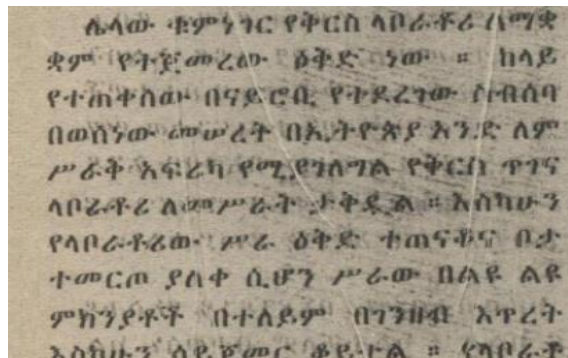 ሌላው ቁምነገር የቅርስ ላቦራቶሪ ለማቋ
ቋም የትጀመረው ዕቅድ ነው ። ከላይ
የተጠቀሰው በናይሮቢ የተደረገው ስብሰባ
በወሰነው መሠረት በኢትዮጵያ አንድ ለም
ሥራቅ አፍሪካ የሚያገለግል የቅርስ ጥገና
ላቦራቶሪ ለመሥራት ታቅዷል ። እስካሁን
የላቦራቶሪው ሥራ ዕቅድ ተጠናቆና ቦታ
ተመርጦ ያለቀ ሲሆን ሥራው በልዩ ልዩ
ምክንያቶች በተለይም በገንዘብ እጥረት
እስካሁን ሳይጀመር ቆይቷል ። የላቦራቶ